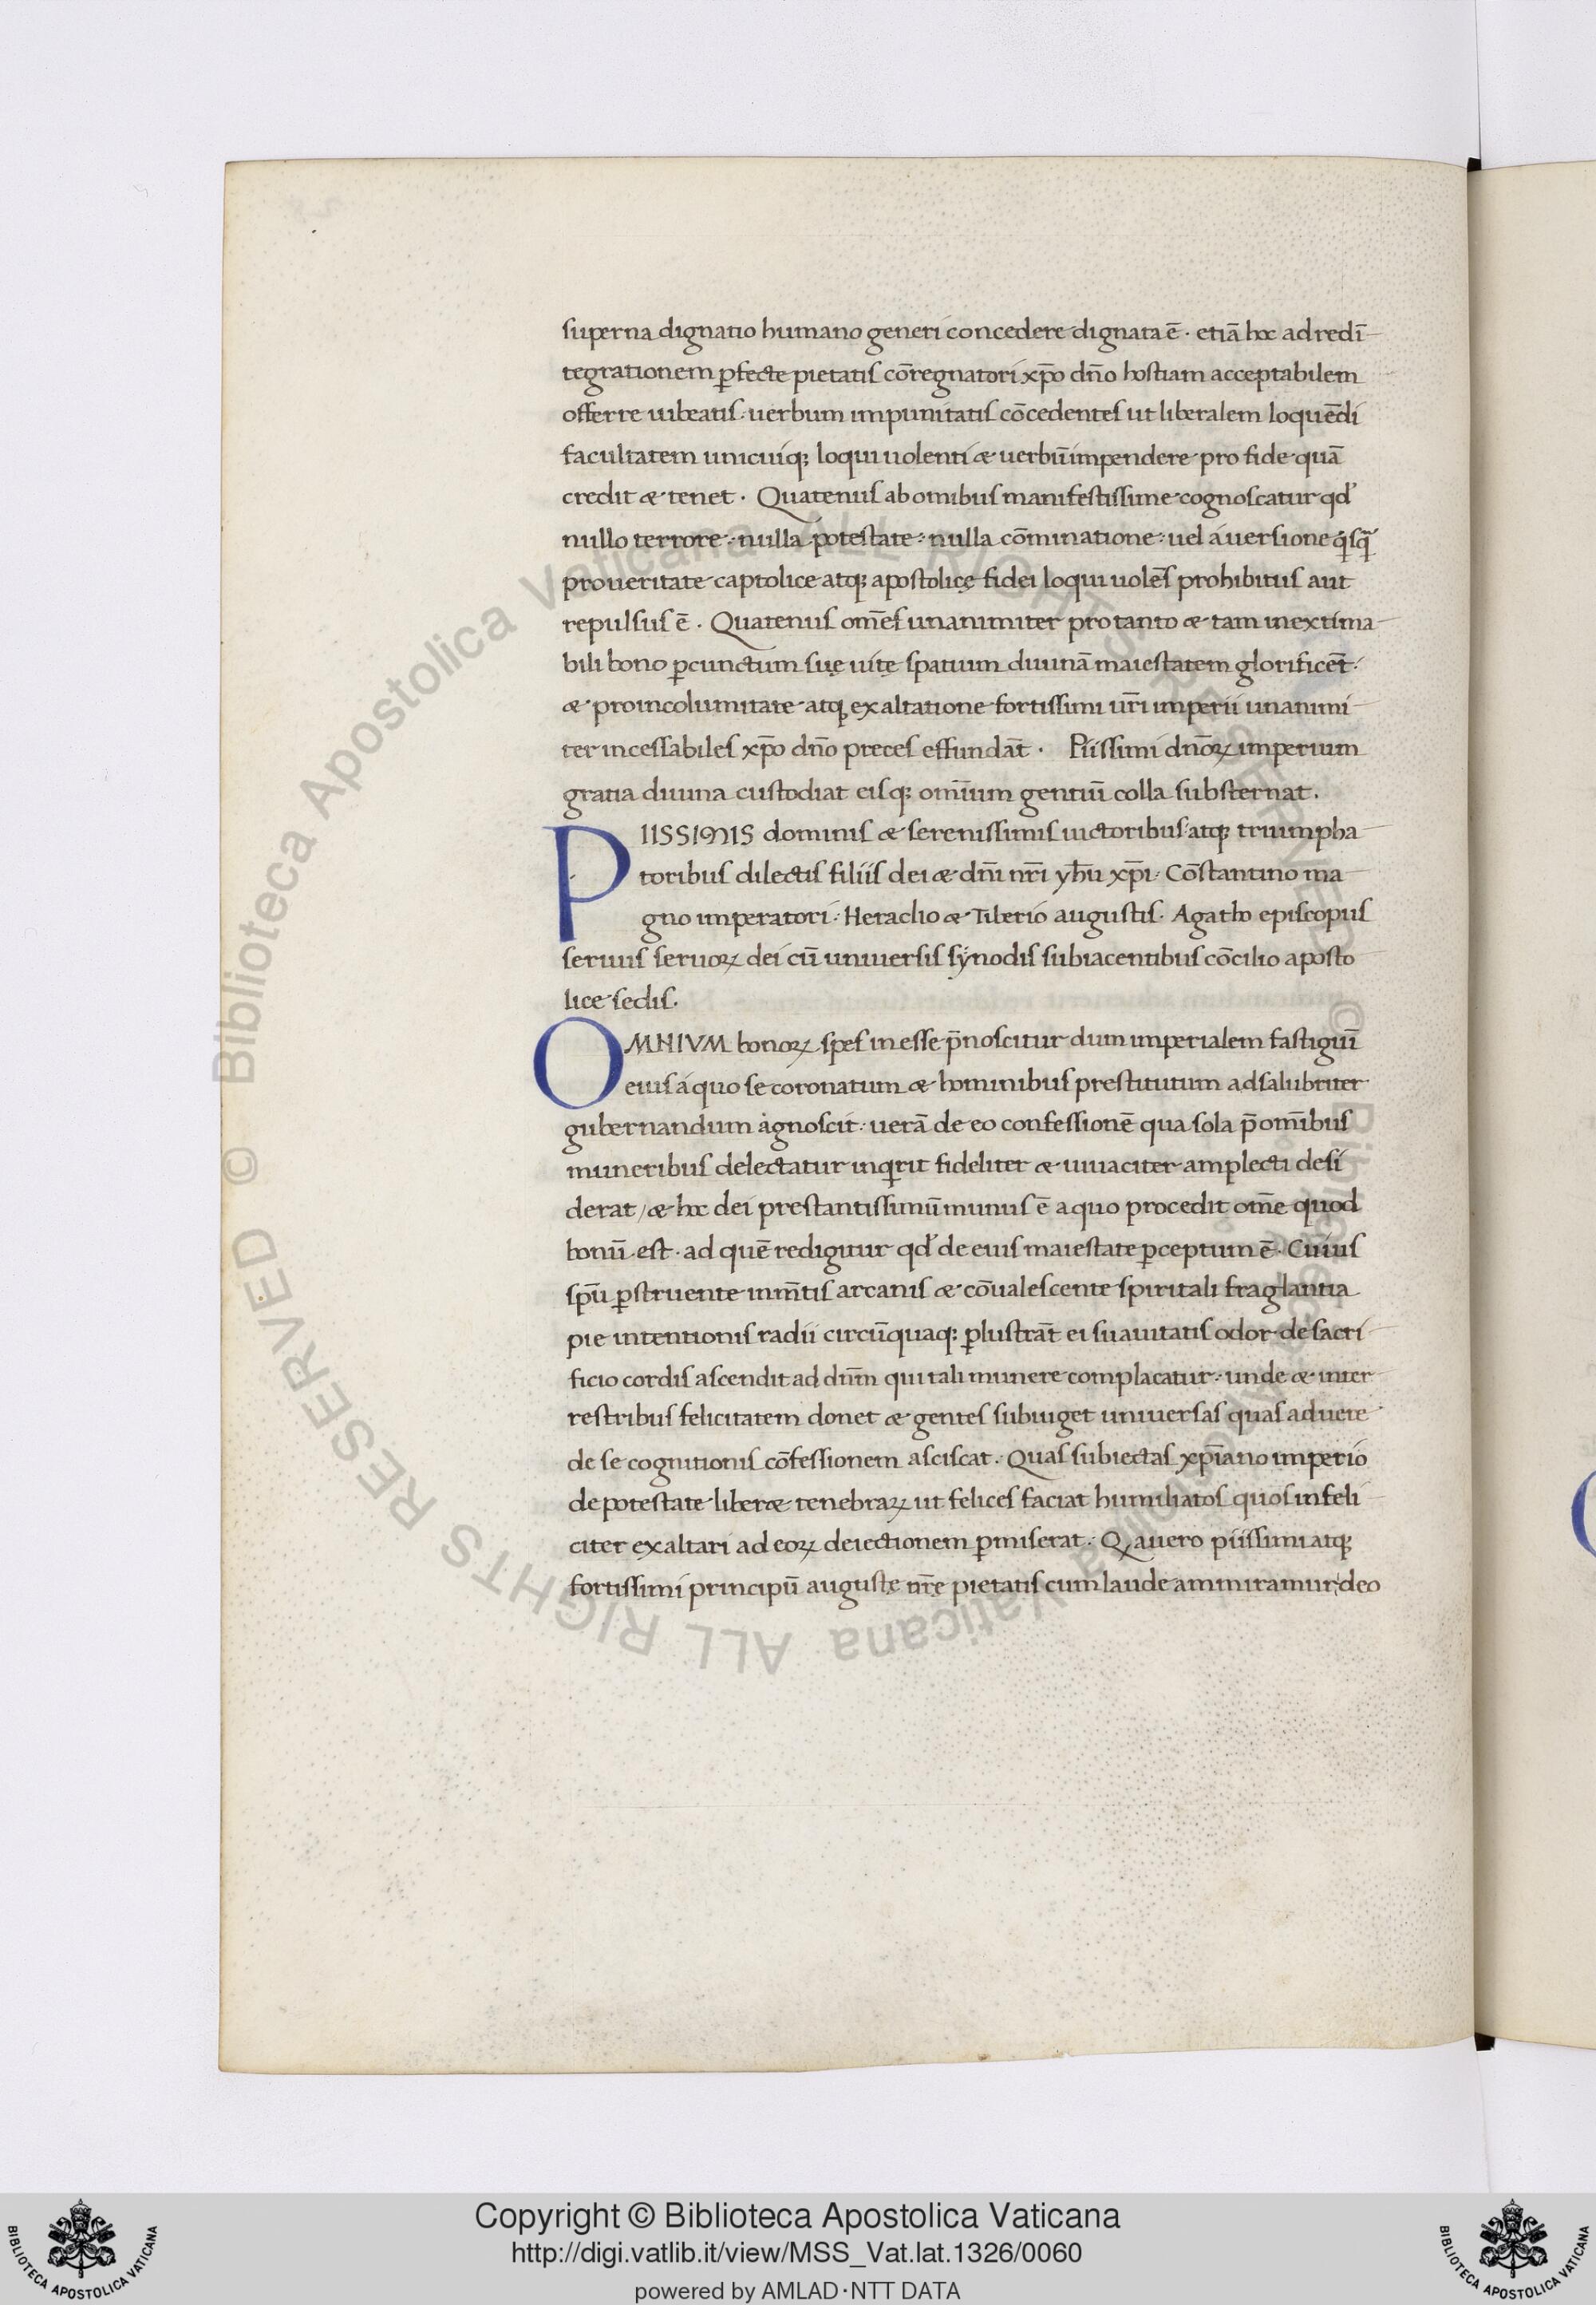 superna dignatio humano generi concedere dignata ē · etiā hoc ad redī
tegrationem ꝑfecte pietatis cōregnatori xp̄o dn̄o hostiam acceptabilem
offerre iubeatis · uerbum impunitatis cōcedentes ut liberalem loquēdi
facultatem unicuiqꝫ loqui uolenti & uerbū impendere pro fide quā
credit & tenet · Quatenus ab omibus manifestissime cognoscatur qd'
nullo terrore · nulla potestate · nulla cōminatione · uel auersione
pro ueritate captolice atqꝫ apostolicę fidei loqui uolēs prohibitus aut
repulsus ē · Quatenus om̄es unanimiter pro tanto & tam inextima
bili bono ꝑ cunctum suę uitę spatium diuinā maiestatem glorificēt ·
& pro incolumitate atqꝫ exaltatione fortissimi ur̄i imperii unanimi
ter incessabiles xp̄o dn̄o preces effundāt · Piissimi dn̄oꝝ imperium
gratia diuina custodiat eisqꝫ om̄ium gentiū colla substernat ·
PIISSIMIS dominis & serenissimis uictoribus atqꝫ triumpha
toribus dilectis filiis dei & dn̄i nr̄i yhū xp̄i · Cōstantino ma
gno imperatori · Heraclio & Tiberio augustis · Agatho episcopus
seruus seruoꝝ dei cū uniuersis synodis subiacentibus cōcilio aposto
lice sedis ·
OMNIVM bonoꝝ spes inesse p̄noscitur dum imperialem fastigiū
eius a quo se coronatum & hominibus prestitutum ad salubriter
gubernandum agnoscit · uerā de eo confessionē qua sola p̄ om̄ibus
muneribus delectatur inqͥrit fideliter & uiuaciter amplecti desi
derat / & hoc dei prestantissimū munus ē a quo procedit om̄e quod
bonū est · ad quē redigitur qd' de eius maiestate ꝑceptum ē · Cuius
sp̄u ꝑstruente in m̄tis arcanis & cōualescente spiritali fraglantia
pie intentionis radii circūquaqꝫ ꝑlustrāt ei suauitatis odor de sacri
ficio cordis ascendit ad dn̄m qui tali munere complacatur · unde & inter
restribus felicitatem donet & gentes subiuget uniuersas quas ad uere
de se cognitionis cōfessionem asciscat · Quas subiectas xp̄iano imperio
de potestate liber& tenebraꝝ ut felices faciat humiliatos quos infeli
citer exaltari ad eoꝝ deiectionem ꝑmiserat · Qꝝ a uero piissimi atqꝫ
fortissimi principū augustę nr̄ę pietatis cum laude ammiramur deo
© Biblioteca Apostolica Vaticana ALL RIGHTS RESERVED
© Biblioteca Apostolica Vaticana ALL RIGHTS RESERVED
Copyright © Biblioteca Apostolica Vaticana
http://digi.vatlib.it/view/MSS_Vat.lat.1326/0060
powered by AMLAD·NTT DATA
BIBLIOTECA APOSTOLICA VATICANA
BIBLIOTECA APOSTOLICA VATICANA